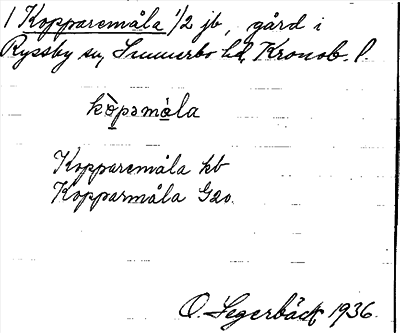 1 Kopparemåla 1/2 jb, gård i
Ryssby sn, Sunnerbo hd, Kronob. l.
kòpamàla
Kopparemåla kb
Kopparmåla Gao.
O. Segerbäck 1936.